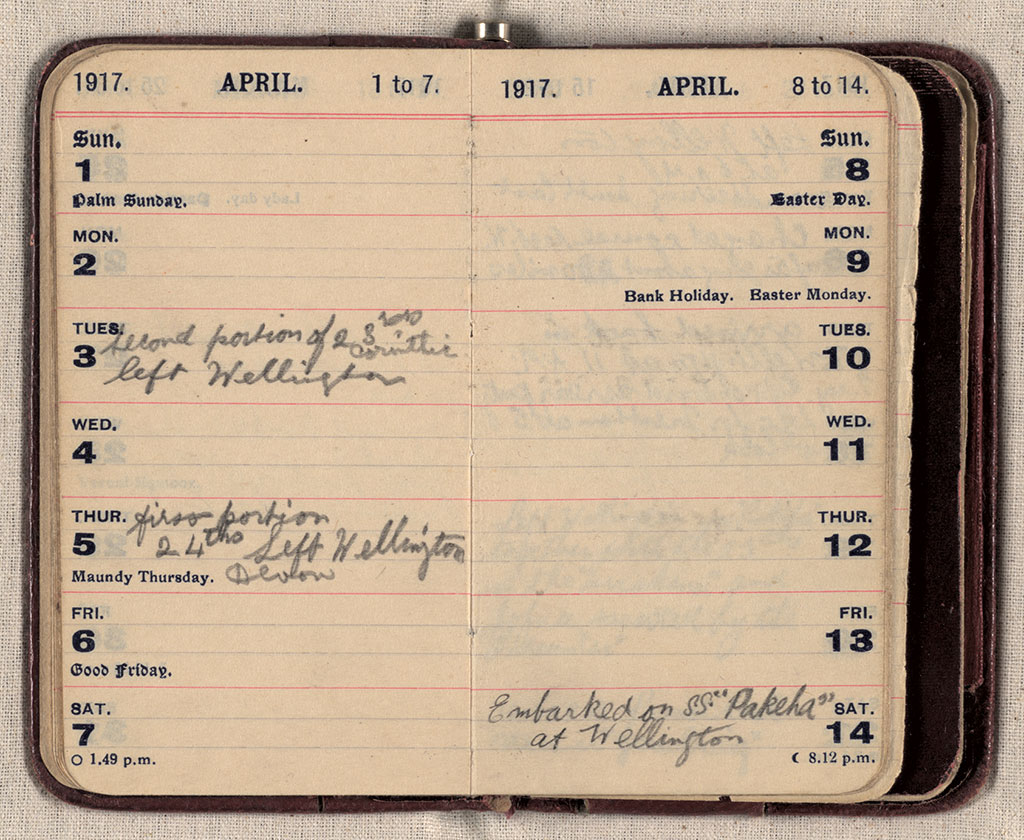 1917. APRIL. 1 to 7.
Sun.
1
Palm Sunday.
MON.
2
TUES.
3
Second portion of 23rds
Corinthic
left Wellington
WED.
4
THUR.
5
first portion
24ths Left Wellington
Devon
Maundy Thursday.
FRI.
6
Good Friday.
SAT.
7
1.49 p.m.
1917. APRIL. 8 to 14.
Sun.
8
Easter Day.
MON.
9
Bank Holiday. Easter Monday.
TUES.
10
WED.
11
THUR.
12
FRI.
13
SAT.
14
Embarked on SS "Pakeha"
at Wellington
☾ 8.12 p.m.